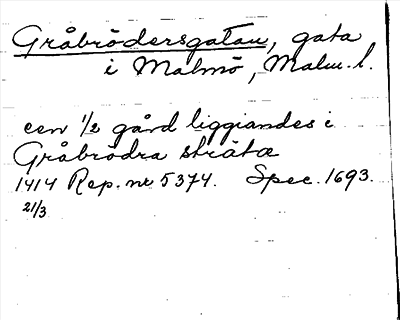 Gråbrödersgatan, gata
i Malmö, Malm. l.
een 1/2 gård liggiandes i
Gråbrödra stræte
1414 Rep. nr 5374. Spec. 1693.
21/3